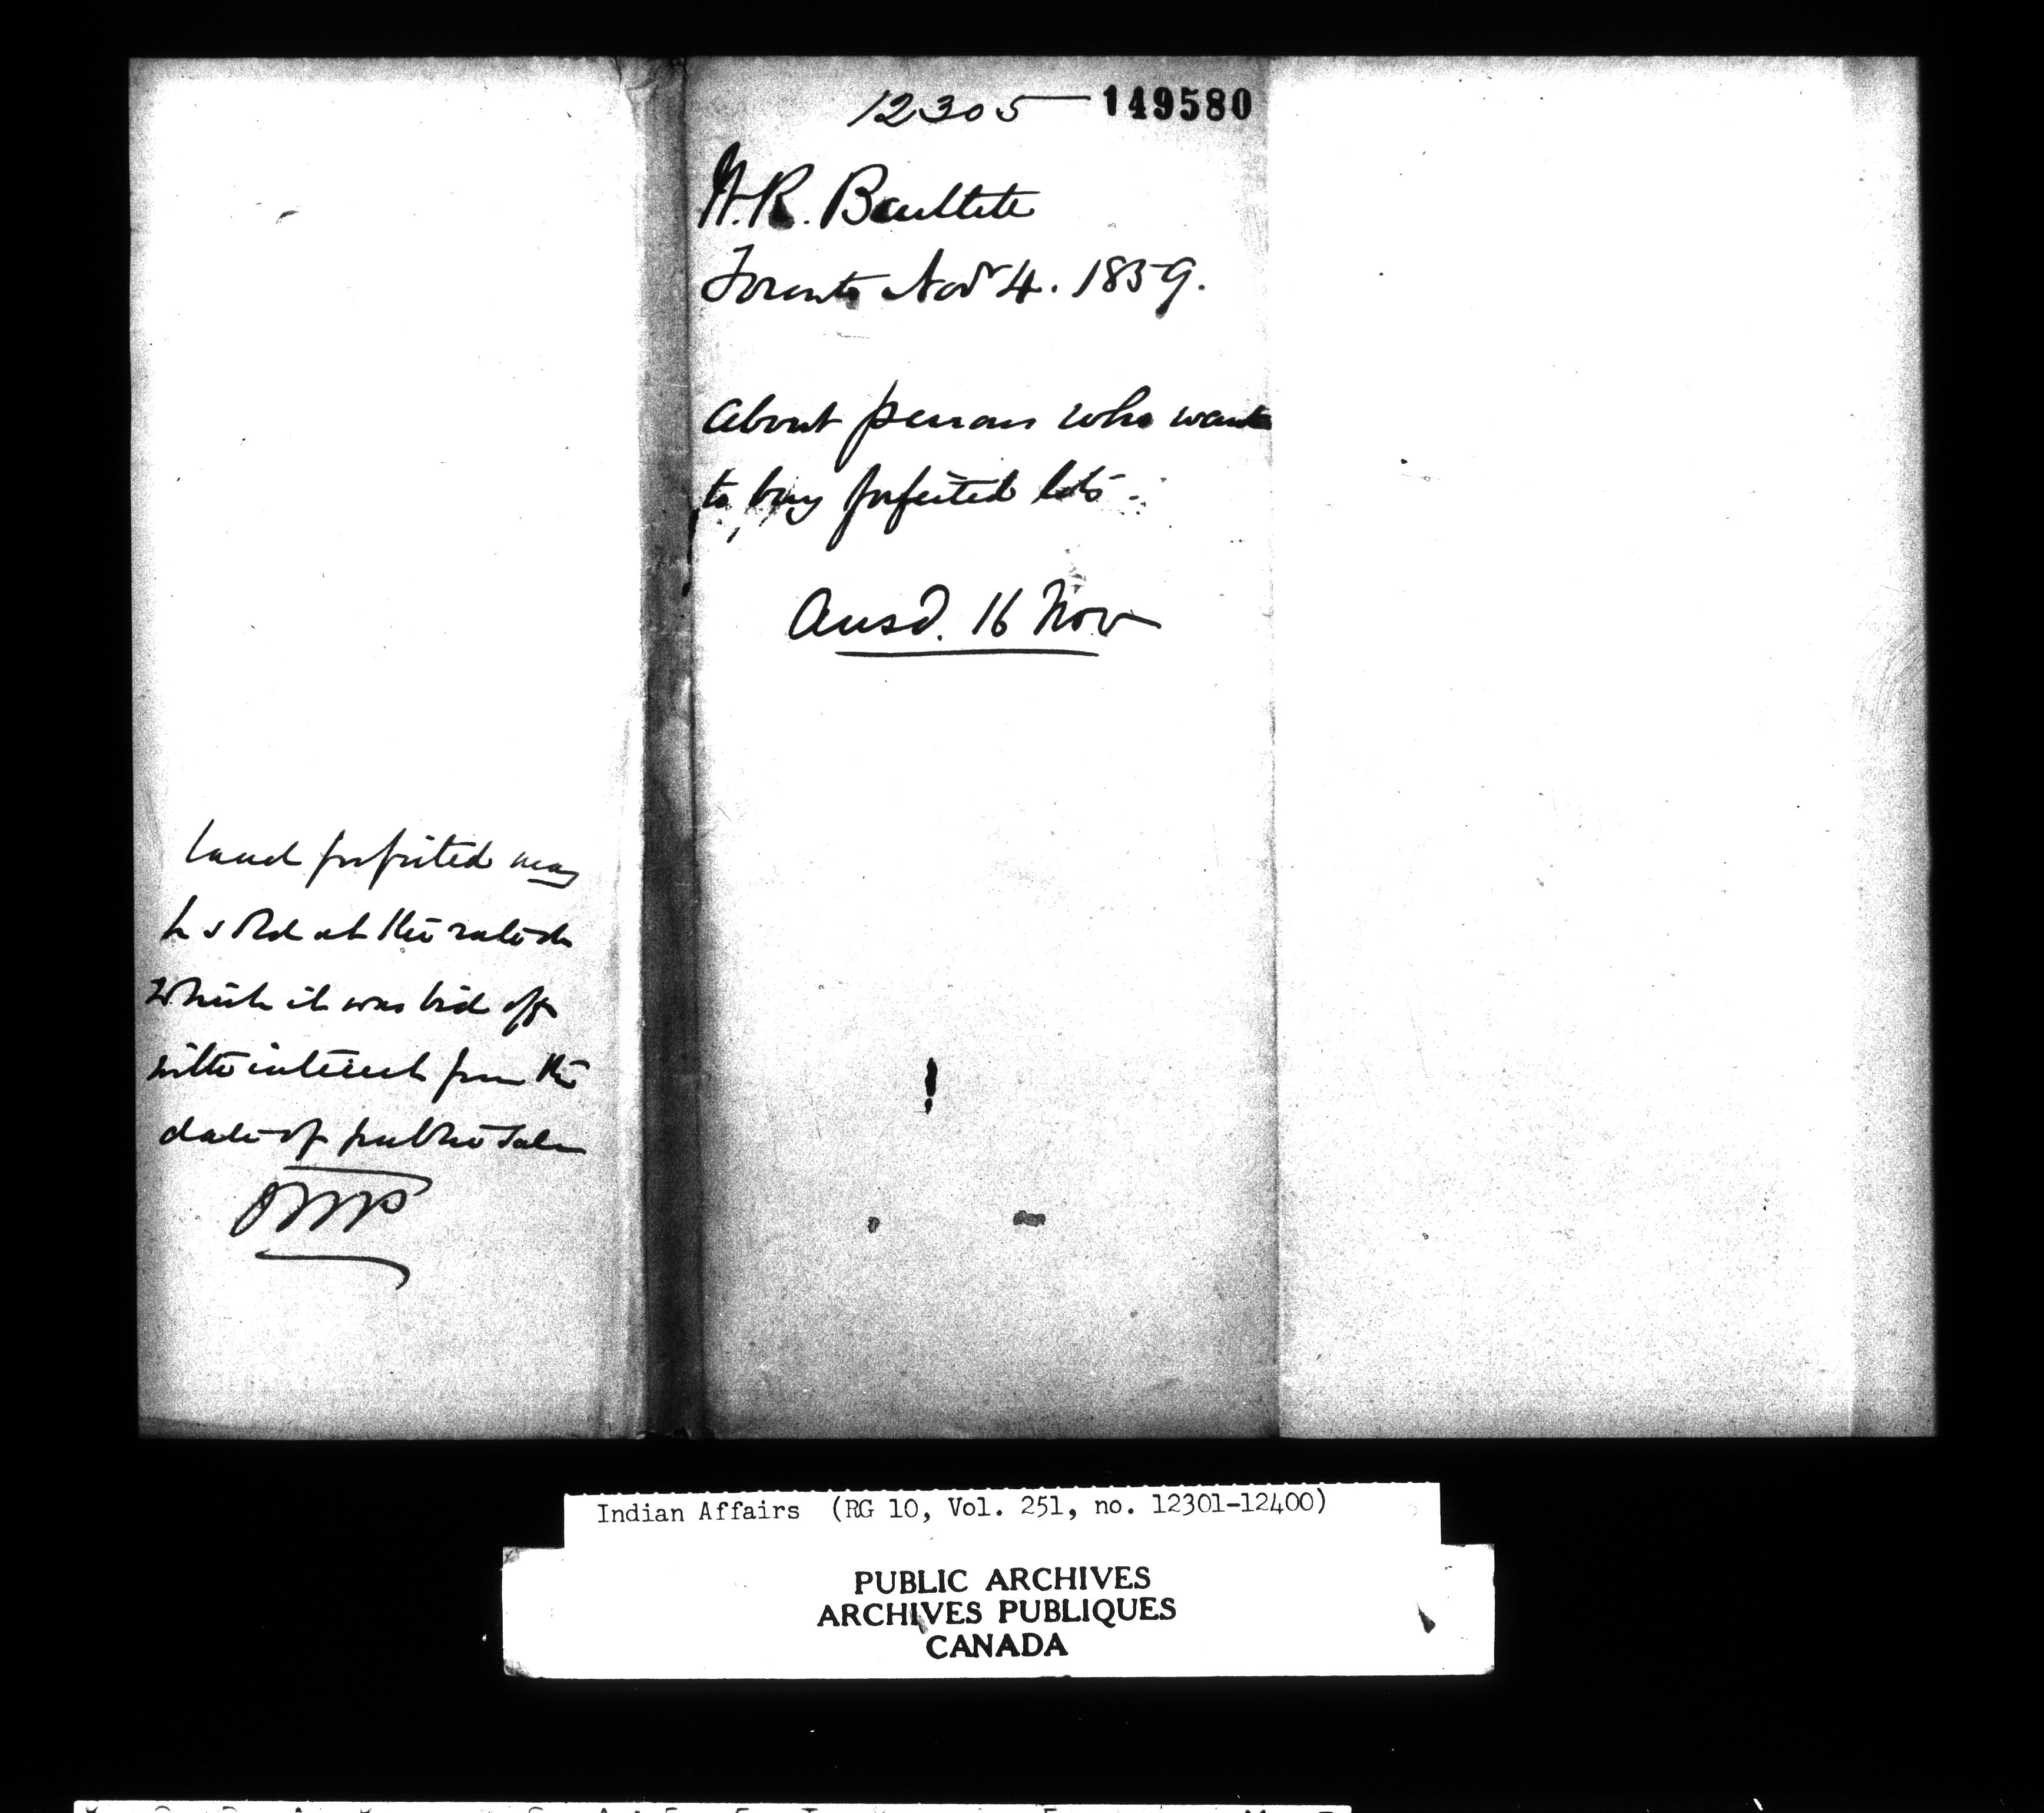 land forfeited may
be sold at the rate at
which it was bid off
with interest from the
date of public sale
12305 — 149580
W.R. Bartlett
Toronto Novr 4. 1859.
About persons who want
to buy forfeited lots.
Ansd. 16 Nov
Indian Affairs (RG 10, Vol. 251, no. 12301-12400)
PUBLIC ARCHIVES
ARCHIVES PUBLIQUES
CANADA